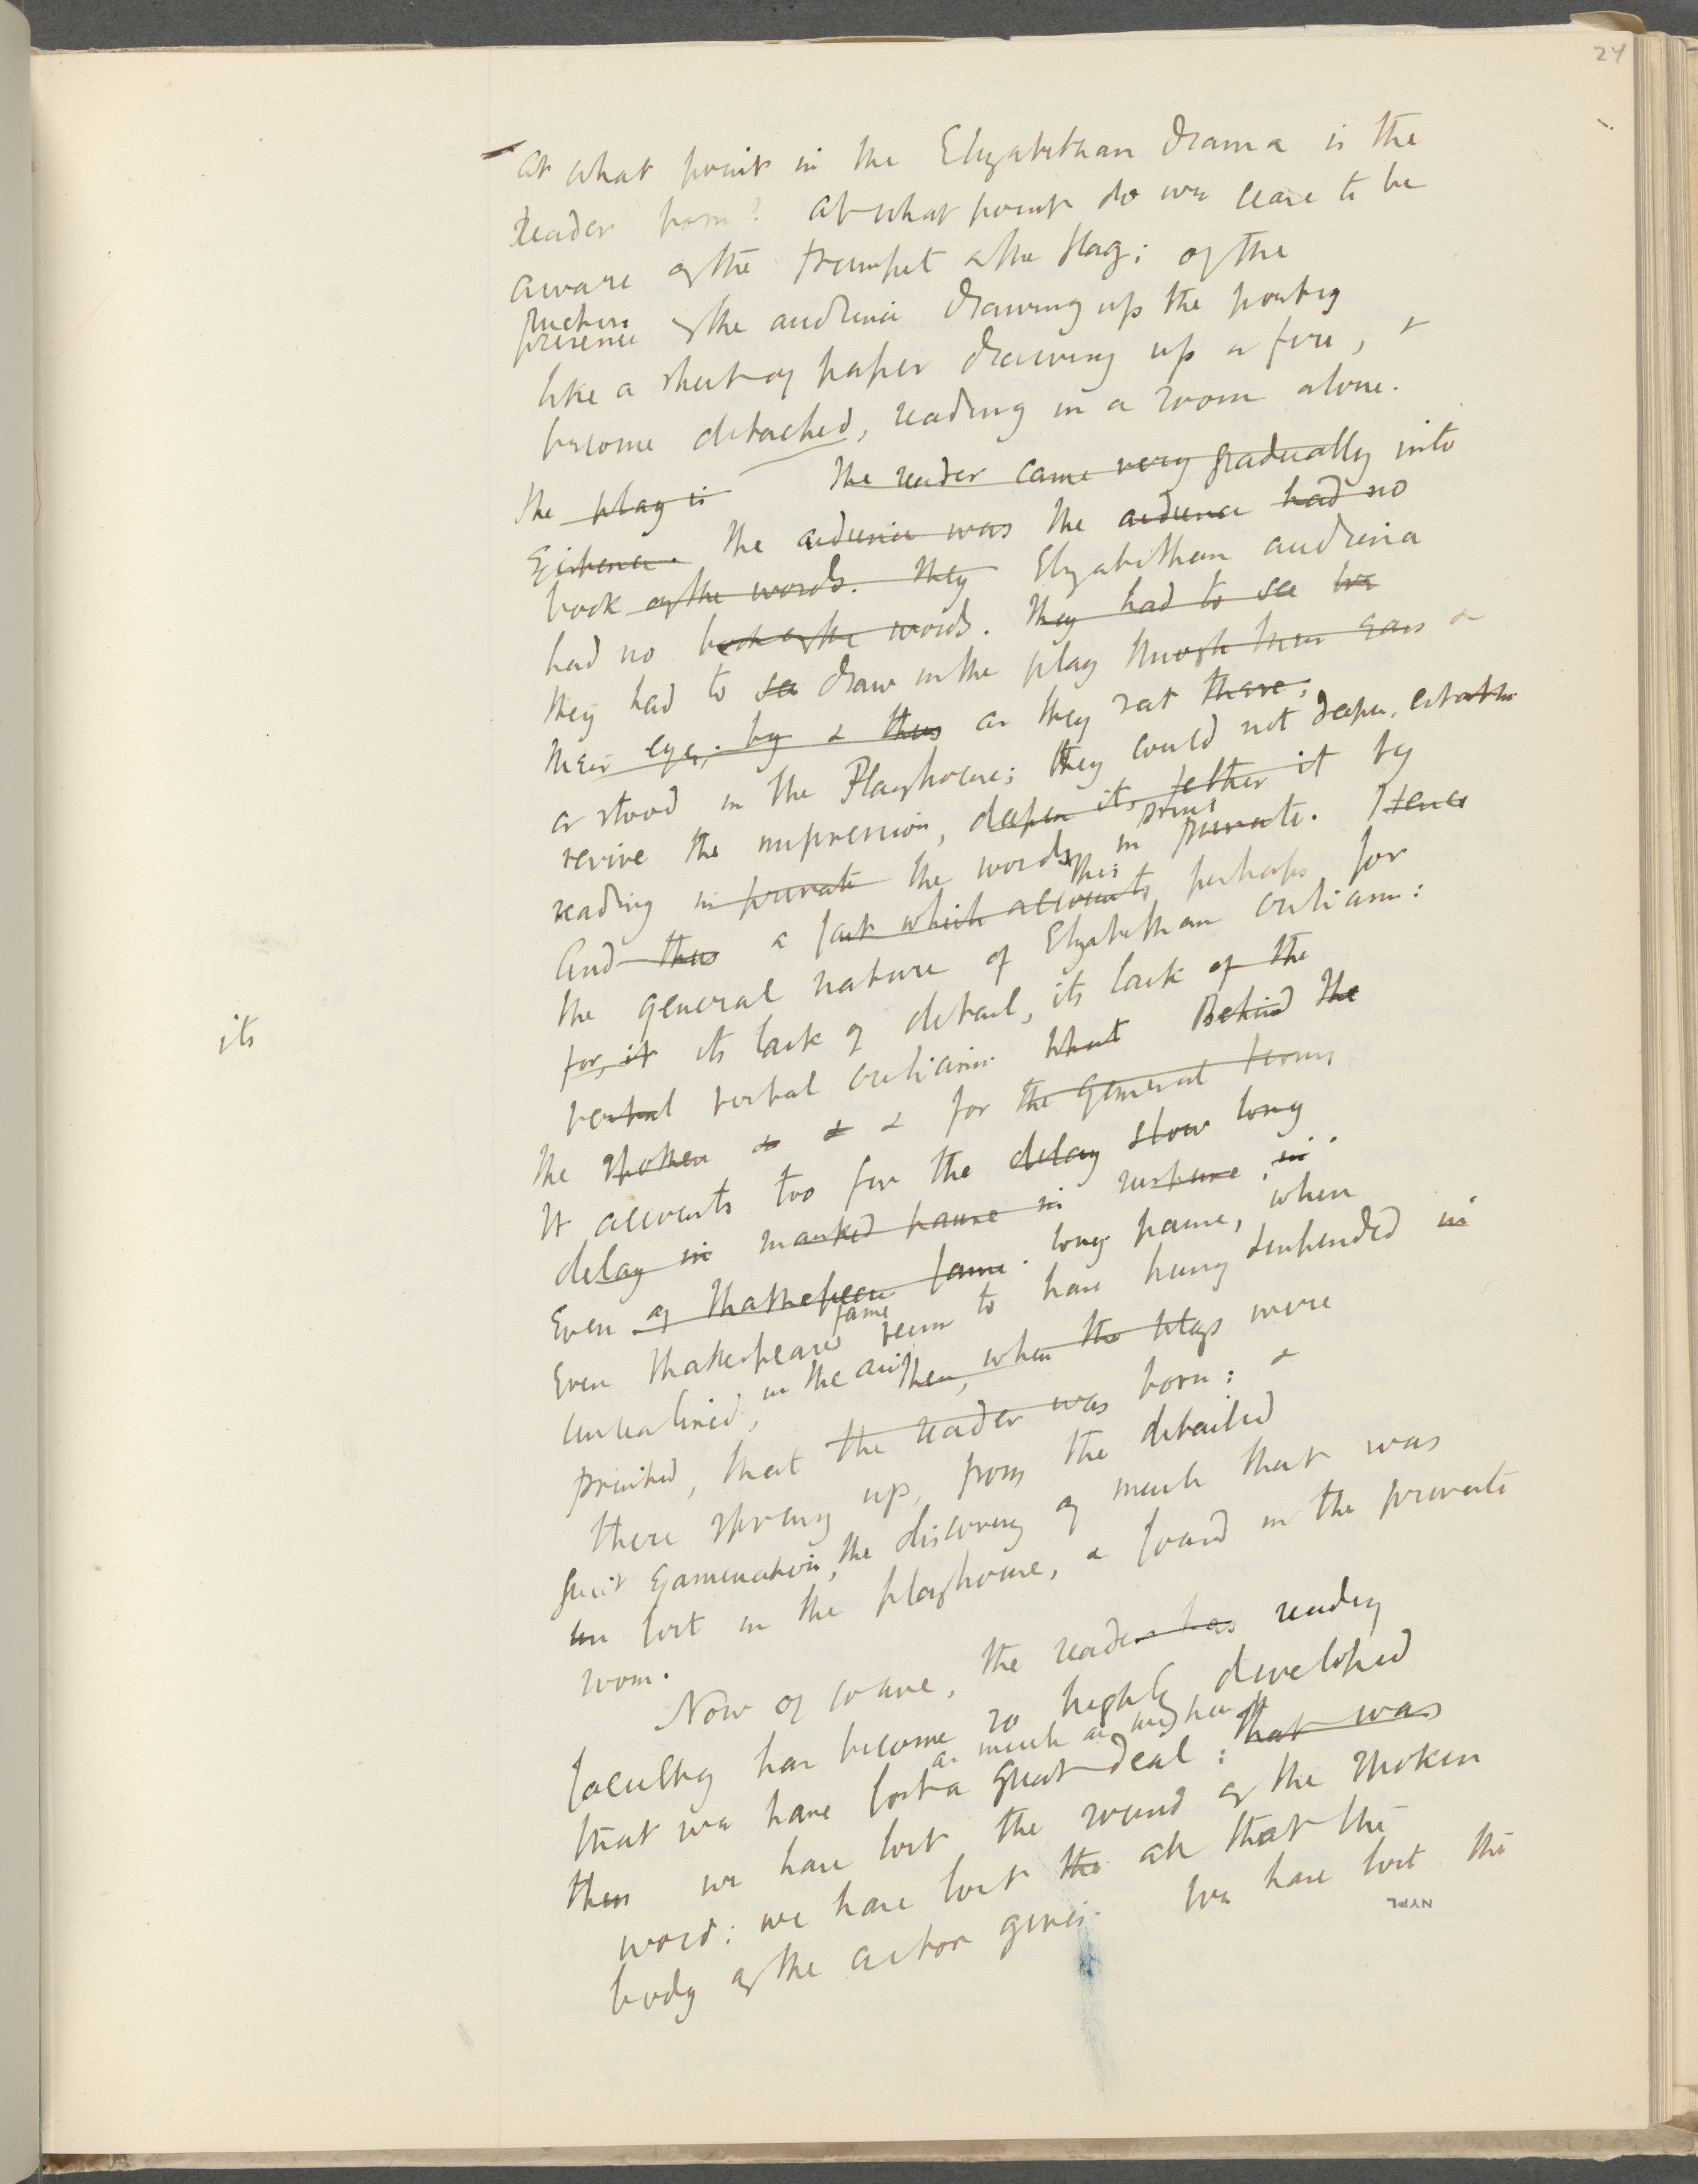 24
At what point in the Elizabethan drama is the
reader born? At what point do we cease to be
aware of the trumpet & the flag; of the
picture
presence of the audience drawing up the poetry
like a sheet of paper drawing up a fire, &
become detached, reading in a room alone.
The play is The reader came very gradually into
Existence. The audience was the audience had no
book of the words. They Elizabethan audience
had no book of the words. They had to see
They had to see draw in the play through their ears &
their eyes, by & thus as they sat there,
or stood in the Playhouse; they could not deepen,
revive the impression, deepen its tether it by
reading in private the words in print private. Hence
And thus a fact which accounts this perhaps for
the general nature of Elizabethan criticism:
for, it its lack of detail, its lack of the
its
verbal verbal criticism what Behind the
the spoken & & & for the general terms
It accounts too for the delay slow long
delay in marked pause in in
Even of Shakespeare fame. long pause, when
Even Shakespeares fame seem to have hung suspended in
unrealised, in the air then, when the plays were
printed, that the reader was born: &
there sprung up, from the detailed
Examination, the discovery of much that was
un lost in the playhouse, & found in the private
room.
Now of course, the reader has reading
faculty has become so highly developed
as much as we have
that we have lost a great deal: that was
then we have lost the sound of the spoken
word; we have lost the all that the
body of the actor gives. We have lost the
NYPL